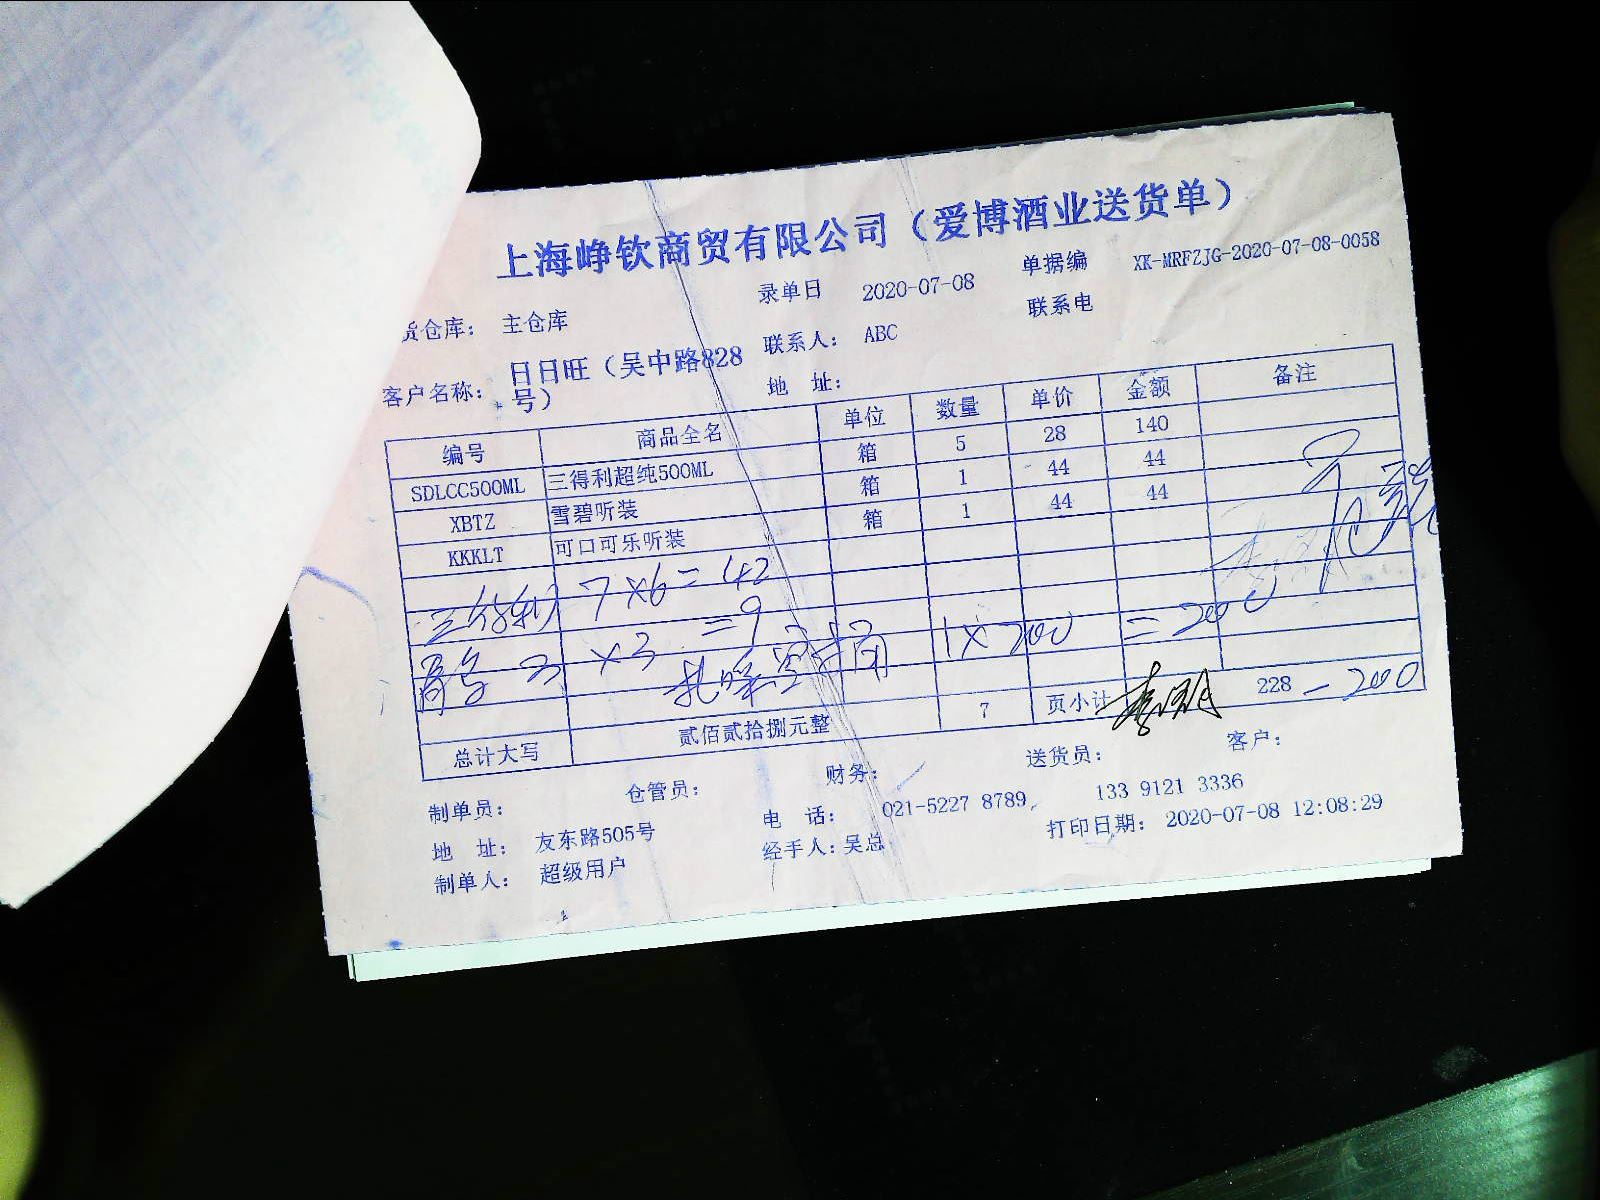 上海峥钦商贸有限公司（爱博酒业送货单）
货仓库： 主仓库 录单日 2020-07-08 单据编 XK-MRFZJG-2020-07-08-0058
客户名称： 日日旺（吴中路828号） 联系人： ABC 联系电
地 址：
编号 商品全名 单位 数量 单价 金额 备注
SDLCC500ML 三得利超纯500ML 箱 5 28 140
XBTZ 雪碧听装 箱 1 44 44
KKKLT 可口可乐听装 箱 1 44 44
三得利 7×6=42
×3 =9
1×200 =200
7 页小计 228 -200
总计大写 贰佰贰拾捌元整
制单员： 仓管员： 财务： 送货员： 客户：
地 址： 友东路505号 电 话： 021-5227 8789， 133 9121 3336
制单人： 超级用户 经手人：吴总 打印日期： 2020-07-08 12:08:29